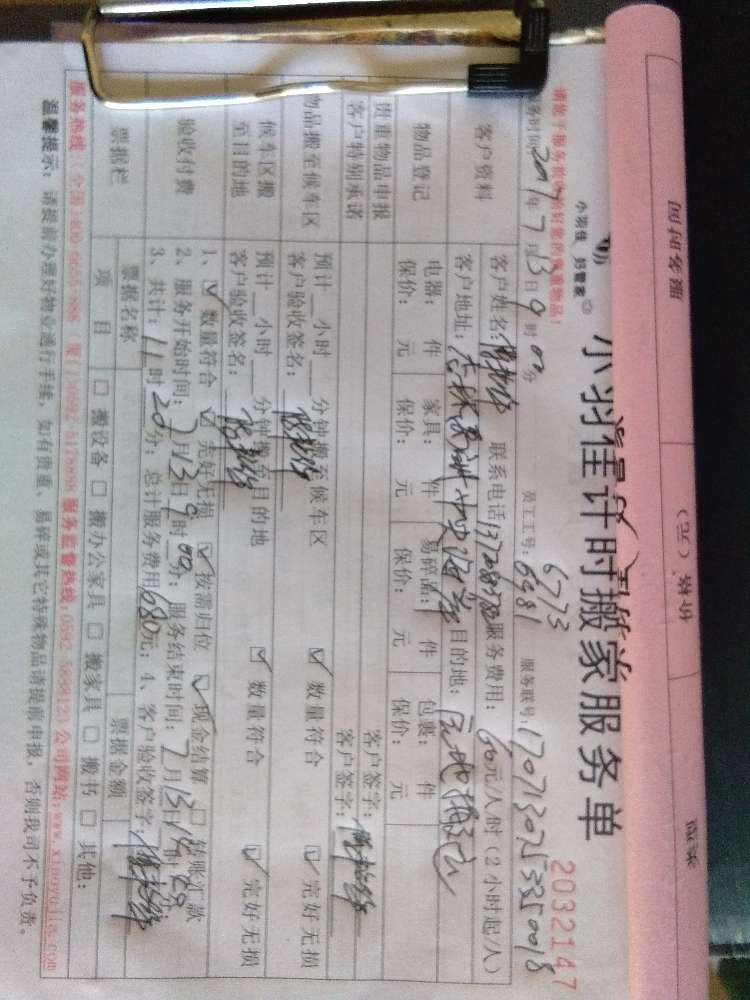 小羽佳计时搬家服务单
2032147
小羽佳 好管家
服务时间 2017年7月13日9时00分 员工工号: 6773 6981 服务联号: 170713025350018
客户资料
客户姓名: 联系电话 服务费用: 60元/人/时(2小时起/人)
客户地址: 目的地:
物品登记
电器: 件 家具: 件 易碎品: 件 包裹: 件
保价: 元 保价: 元 保价: 元 保价: 元
贵重物品申报 客户签字:
客户特别承诺 客户签字:
物品搬至候车区
预计 小时 分钟搬至候车区 ☑ 数量符合 ☑ 完好无损
客户验收签名:
候车区搬至目的地
预计 小时 分钟搬至目的地 ☑ 数量符合 ☑ 完好无损
客户验收签名:
验收付费
1、☑ 数量符合 ☑ 完好无损 ☑ 按需归位 ☑ 现金结算 □ 转账汇款
2、服务开始时间: 7月13日9时00分; 服务结束时间: 7月13日
3、共计: 11时20分; 总计服务费用 680元; 4、客户验收签字:
票据栏
票据名称 票据金额
项 目 □ 搬设备 □ 搬办公家具 □ 搬家具 □ 搬书 □ 其他:
服务热线: (全国)400-6655-888 厦(1)0592-5176888 服务监督热线:0592-5898123 公司网站:www.xiaoyujia.com
温馨提示: 请提前办理好物业通行手续, 如有贵重、易碎或其它特殊物品请提前申报, 否则我司不予负责。